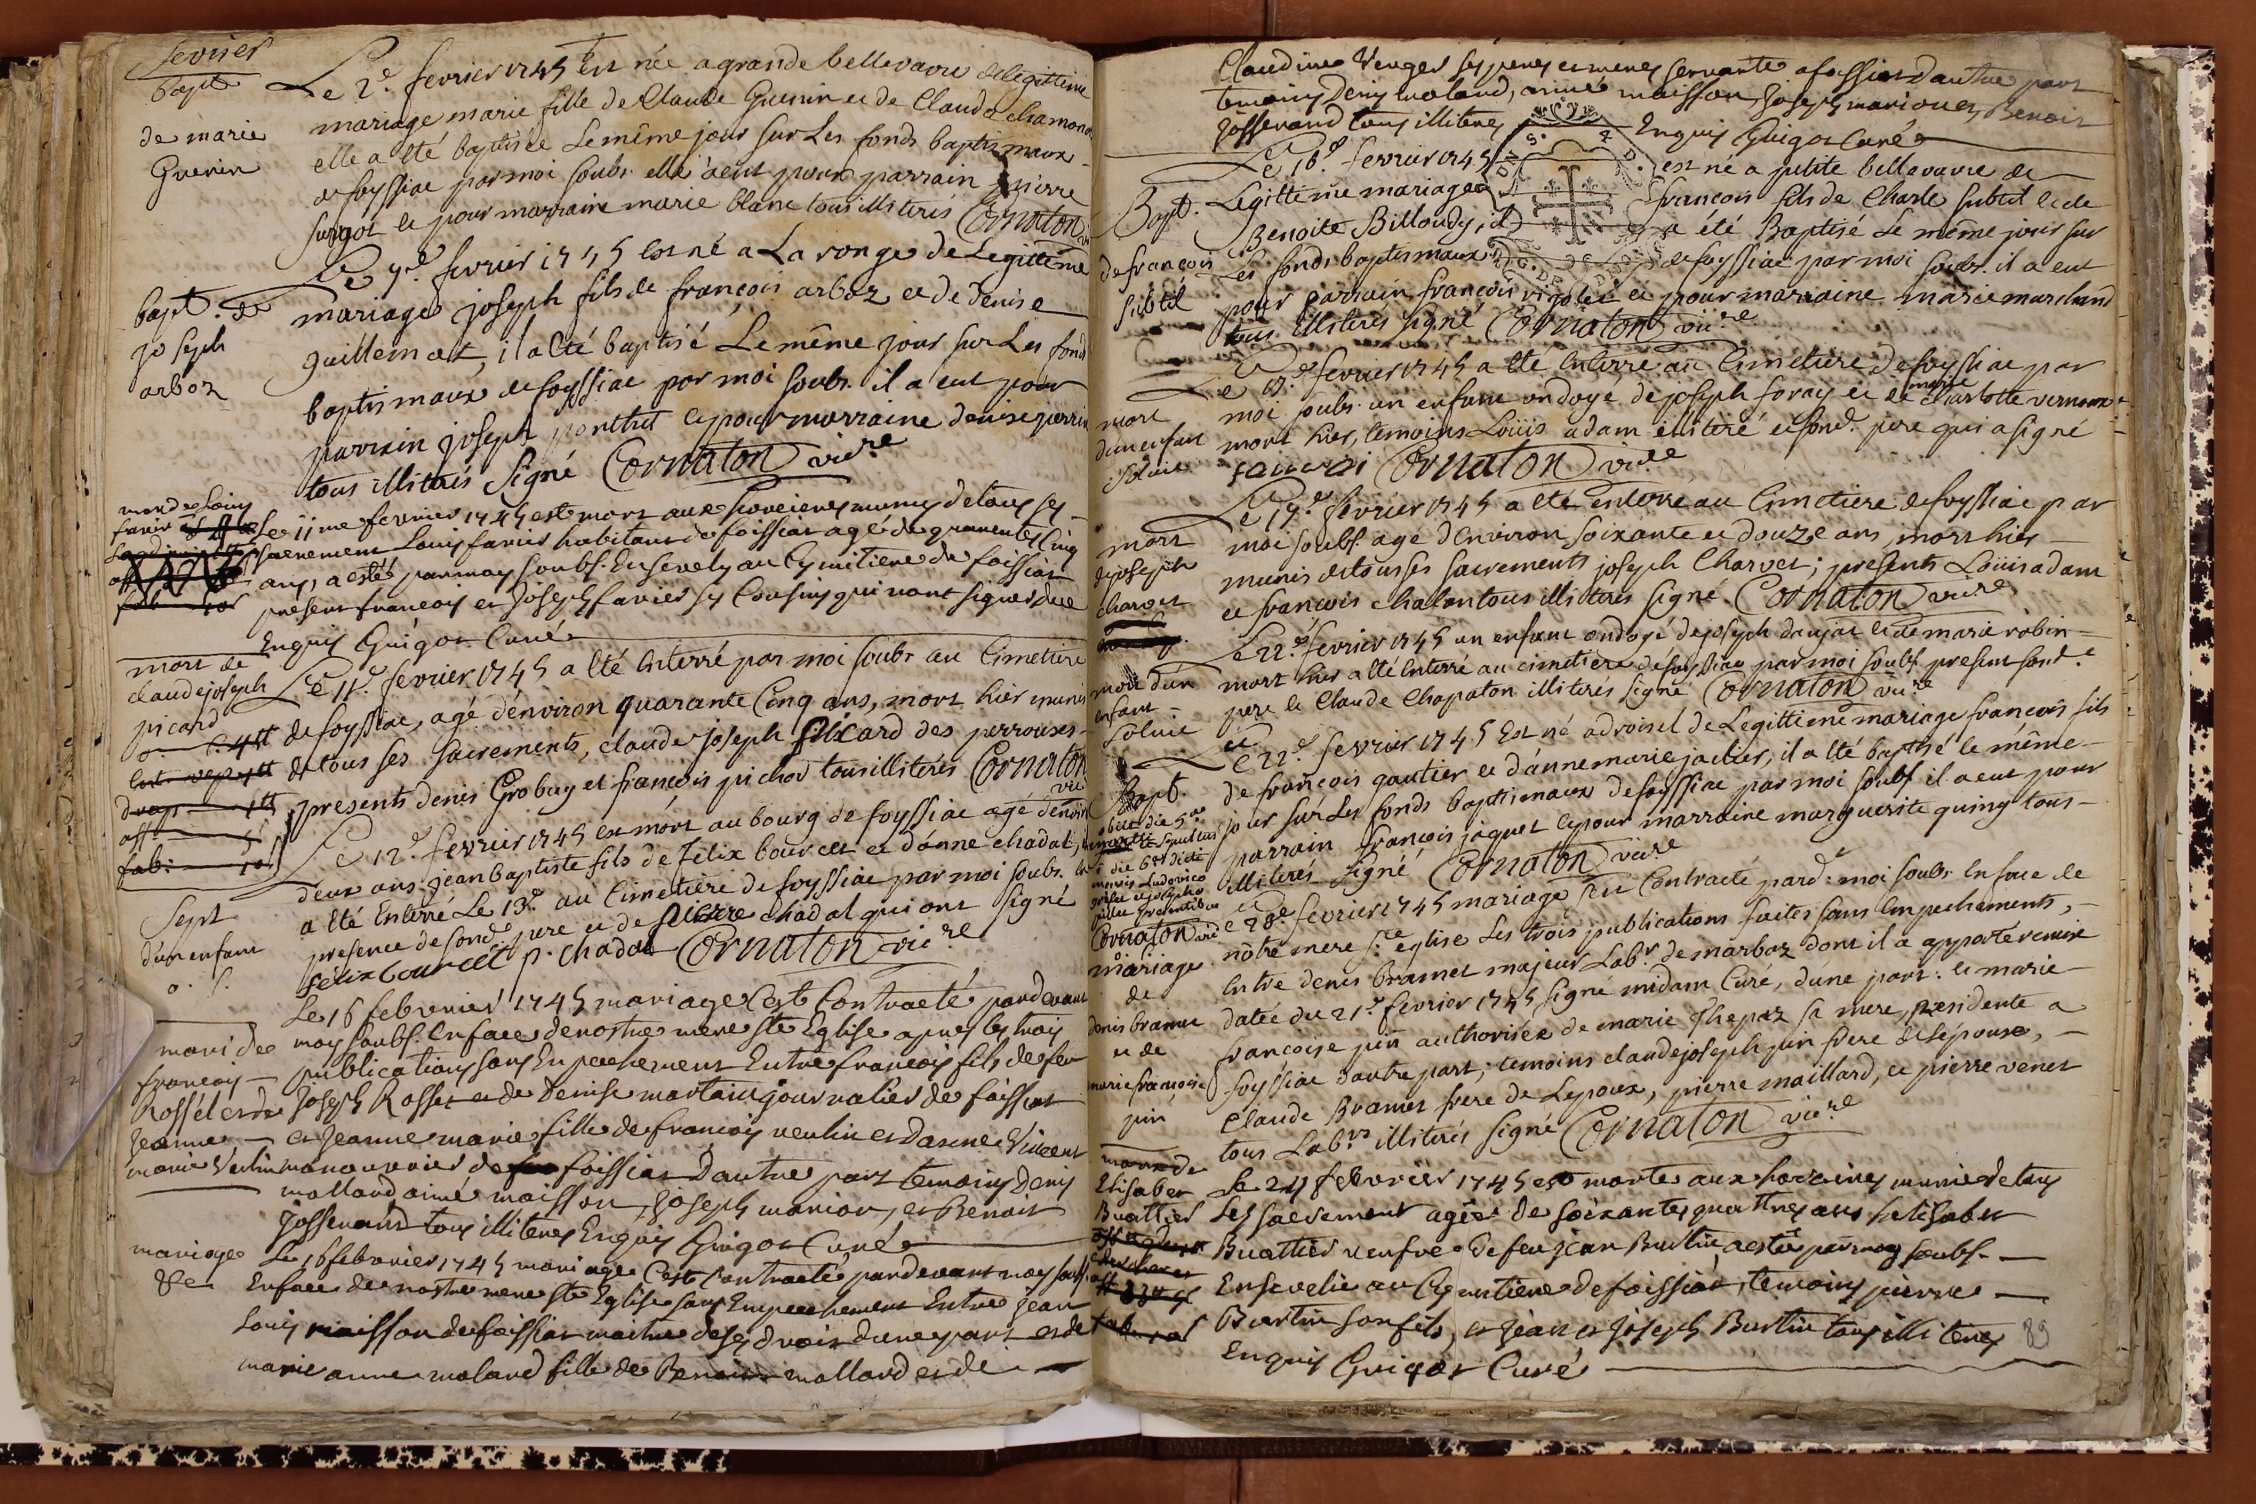 fevrier
bapt.
de marie
Guerin
Le 2e. fevrier 1745 Est née a grande bellevavre de legittime
mariage marie fille de Claude Guerin et de Claude chamond
elle a été baptisée le même jour sur Les fonds baptismaux
de foyssiac par moi soubs. elle a eut pour parrain pierre
et pour marraine marie blanc tous illiterés Cornaton
bapt. de
joseph
arboz
Le 7e. fevrier 1745 est né a La ronge de Legitteme
mariage joseph fils de françois arboz et de Denise
guillemot, il a été baptisé Le même jour sur Les fonds
baptismaux de foyssiac par moi soubs. il a eut pour
parrain joseph ponthet et pour marraine denise perrin
tous illiterés Signé Cornaton vicre
mort de Louis
favier
Le 11me fevrier 1745 est mort aux munis de tous ses
sacrement Louis favier habitant de foissiat agé de quarente Cinq
ans, a esté par moy soubs. Ensevely au Cymitiere de foissiat
present francoys et Joseph favier ses Cousins qui n'ont signés de ce
Enquis Guigot Curé
mort de
claude joseph
picard
Le 11e. fevrier 1745 a été Enterré par moi soubs au Cimetiere
de foyssiac, agé d'environ quarante Cinq ans, mort hier munis
de tous ses sacrements, claude joseph picard des perrouses
presents denis Grobuy et françois pichod tous illiterés Cornaton
vic
Sept
d'un enfant
Le 12e. fevrier 1745 est mort au bourg de foyssiac agé d'environ
deux ans jean baptiste fils de felix bourcet et d'anne chadal, il
a été Enterré Le 13e. au Cimetiere de foyssiac par moi soubs. en
presence de sond. pere et de pierre chadal qui ont signé
felix bourcet p. chadal Cornaton vicre
mari de
francois
Rosset et de
Jeanne
marie Veulin
Le 16 febvrier 1745 mariage s'est Contracté pardevant
moy soubs. En face de nostre mere ste Eglise apres les trois
publications sans Empeechement Entre francois fils de feu
Joseph Rosset et de Denise martain journalier de foissiat
et Jeanne marie fille de francois veulin et d'anne Vincent
manouvrier de foissiat d'autre part temoins Denis
molland aimé maisson, Joseph marion, et Benoit
Josserand tous illiteres Enquis Guigot Curé
mariage
de
Le 16 febvrier 1745 mariage s'est Contracté pardevant moy soubs.
Enface de nostre mere ste Eglise sans Empeechement Entre Jean
Louis maisson de foissiat maitre de ses droit d'une part et de
marie anne moland fille de Benoit mollard et de
Claudine Venges ses peres et meres servante a foissiat d'autre part
temoins Denis moland, aimé maisson, Joseph marion et Benoit
Josserand tous illiteres Enquis Guigot Curé
Bapt.
de françois
subtil
Le 16e. fevrier 1745 est né a petite bellevavre de
Legitteme mariage françois fils de Charle subtil et de
Benoite Billoudy, il a été Baptisé Le même jour sur
Les fonds baptismaux de foyssiac par moi soubs. il a eut
pour parrain françois vigolet et pour marraine marie marchand
tous illiterés signé Cornaton vicre
mort
d'un enfant
Le 17e. fevrier 1745 a été Enterré au Cimetiere de foyssiac par
moi soubs. un enfant ondoyé de joseph foray et de marie charlotte vernoux
mort hier, temoins Loüis adam illiteré et sond. pere qui a signé
Cornaton vicre
mort
de joseph
charvet
Le 19e. fevrier 1745 a été enterré au Cimetiere de foyssiac par
moi soubs. agé d'environ soixante et douze ans, mort hier
munis de tous ses sacrements joseph Charvet; presents Loüis adam
et françois chalon tous illiterés signé Cornaton vicre
mort d'un
enfant
Le 22e. fevrier 1745 un enfant ondoyé de joseph daujat et de marie robin
mort hier a été Enterré au cimetiere de foyssiac par moi soubs. present sond.
pere et Claude Chapaton illiterés signé Cornaton vicre
Bapt.
Le 22e. fevrier 1745 Est né a droisel de Legitteme mariage francois fils
de françois gautier et d'anne marie jacher, il a été baptisé le même
jour sur Les fonds baptismaux de foyssiac par moi soubs. il a eut pour
parrain françois jaquet et pour marraine marguerite quiny tous
illiterés signé Cornaton vicre
obiit die 5
sepultus
die 6
Ludovico
presentibus
Cornaton vic
mariage
de
denis bramet
et de
marie francoise
pin
Le 23e. fevrier 1745 mariage s'est Contracté pard. moi soubs. En face de
nôtre mere ste. eglise Les trois publications faites sans Empechements,
Entre denis bramet majeur Labr. de marboz dont il a apporté remise
datée du 21e. fevrier 1745 signé midam Curé, d'une part: et marie
francoise pin authorisée de marie Thepaz sa mere, residente a
foyssiac d'autre part; temoins claude joseph pin frere de L'epouse,
Claude Bramet frere de Lepoux, pierre maillard, et pierre venet
tous Labrs. illiterés signé Cornaton vicre
mort de
Elisabet
Buattier
Le 24 febvrier 1745 est morte aux munie de tous
Les sacrement agée de soixante quattre ans Elisabet
Buattier veufve de feu Jean Burtin a esté par moy soubs.
Ensevelie au Cymitiere de foissiat, temoins pierre
Burtin son fils, et Jean et Joseph Burtin tous illiteres
Enquis Guigot Curé
89